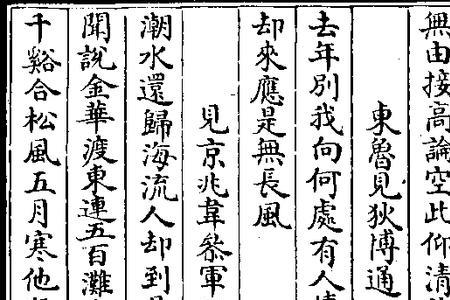 無由接高論空此仰清
東魯見狄博通
去年別我向何處有人
却來應是無長風
見京兆韋參軍
潮水還歸海流人却到
聞說金華渡東連五百灘
千谿合松風五月寒他